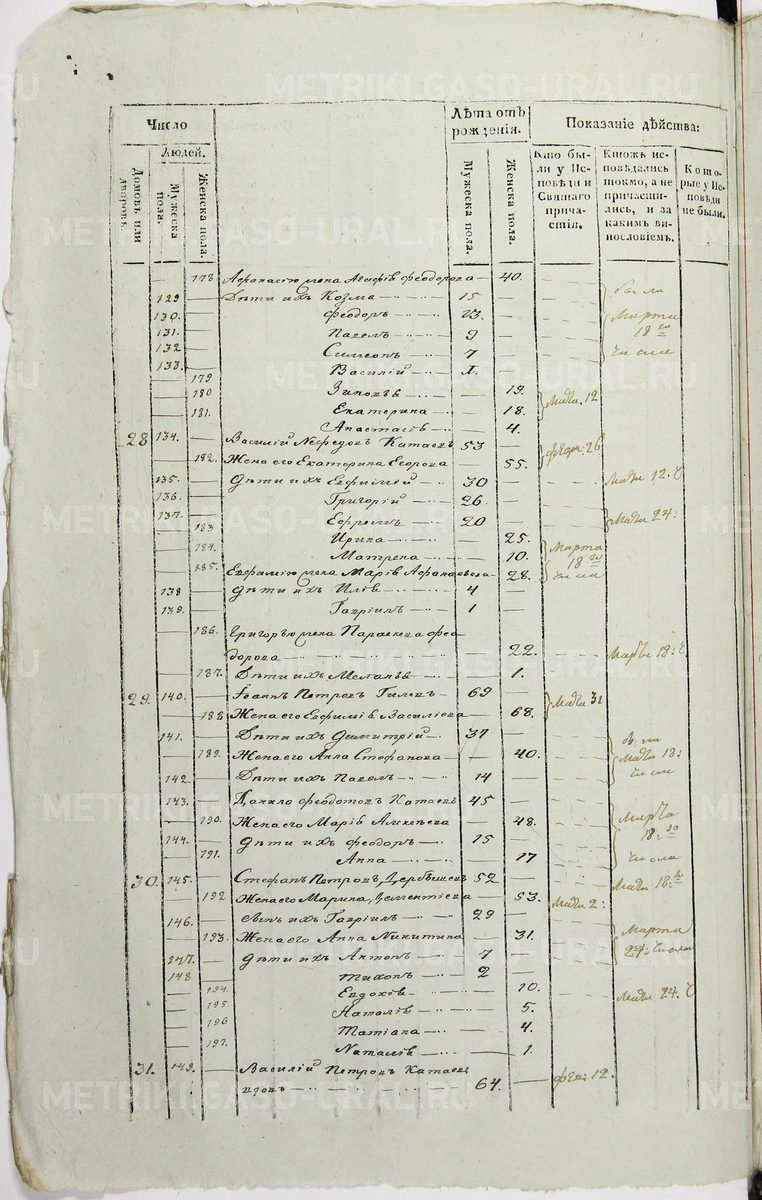 Число
Лѣта отъ рожденія.
Показаніе дѣйства:
Людей.
Домовъ или дворовъ.
Мужеска пола.
Женска пола.
Мужеска пола.
Женска пола.
Кто были у Исповѣди и Святаго причастія.
Ктожъ исповѣдались токмо, а не причастились, и за какимъ винословіемъ.
Которые у Исповѣди не были.
178 Афанасію жена Агафія Феодорова 40.
129 Дѣти ихъ Козма 15
130. Феодоръ 13.
131. Павелъ 9
132 Симеонъ 7
133. Василій
179
180 Зиновья 19.
181. Екатерина 18. 12
Анастасія 4.
28 134. Василій Нефедовъ Катаевъ 53 26
182. Жена его Екатерина Егорова 55.
135. Дѣти ихъ Евфимій 30 12.
136. Григорій 26
137. Ефремъ 20 24:
183 Ирина 25.
184. Матрена 10. Марта 18
185. Евфимію жена Марія Афанасьева 28.
138 Дѣти ихъ Илія 4
139. Гавріилъ 1
186. Григорью жена Параскева Фео-
дорова 22. 18:
187. Дѣти ихъ Меланья 1.
29. 140. Іоаннъ Петровъ Гилевъ 69 31
188 Жена его Евфимія Василіева 68.
141. Дѣти ихъ Димитрій 37
189. Жена его Анна Стефанова 40. 18:
142. Дѣти ихъ Павелъ 14
143. Данило Феодотовъ Катаевъ 45
190. Жена его Марія Алексѣева 48.
144. Дѣти ихъ Феодоръ 15 18.
191. Анна 17 числа
30. 145. Стефанъ Петровъ Дербышевъ 52 18.
192 Жена его Марина Дементіева 53. 2:
146. Сынъ ихъ Гавріилъ 29
193. Жена его Анна Никитина 31. Марта
147. Дѣти ихъ Антонъ 7 24: числа
148 Тихонъ 2
194. Евдокія 10. 24.
195. Наталія 5.
196 Татіана 4.
197. Наталія 1.
31. 149. Василій Петровъ Катаев-
цовъ 64. 12.
METRIKI.GASO-URAL.RU